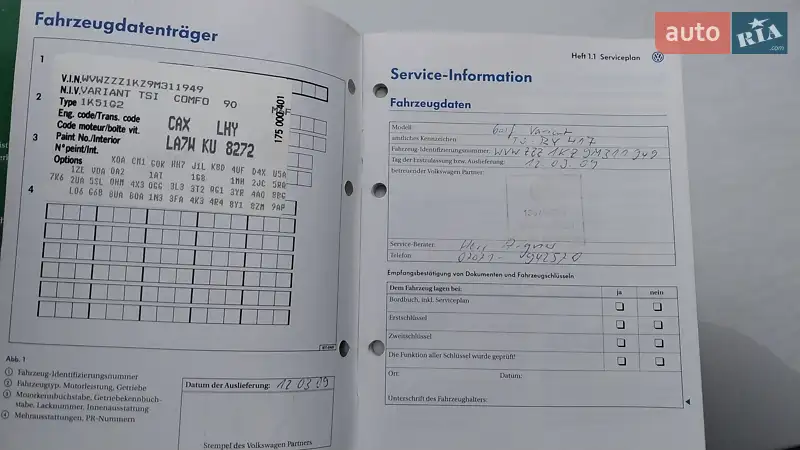 Fahrzeugdatenträger
1
V.I.N. WVWZZZ1KZ9M311949
N.I.V. VARIANT TSI COMFO 90
2
Type 1K51Q2
Eng. code/Trans. code
Code moteur/boîte vit.
CAX LHY
3
Paint No./Interior
N° peint/Int.
LA7W KU 8272
175 000 401
Options
K0A CM1 G0K WH7 J1L K8D 4UF D4X U5A
1ZE V0A 0A2 1AT 1G8 1MH 2JC 5RA
7K6 2UA 5SL 0HM 4X3 0GG 3L3 3T2 RG1 3YR 4A0 8BG
4
L06 G6B 8UA 60A 1N3 3FA 4K3 4R4 8Y1 8ZM 9AP
Abb. 1
1 Fahrzeug-Identifizierungsnummer
2 Fahrzeugtyp, Motorleistung, Getriebe
3 Motorkennbuchstabe, Getriebekennbuch-
stabe, Lacknummer, Innenausstattung
4 Mehrausstattungen, PR-Nummern
Datum der Auslieferung: 12 03 09
Stempel des Volkswagen Partners
Heft 1.1 Serviceplan
Service-Information
Fahrzeugdaten
Modell: Golf Variant
amtliches Kennzeichen
Fahrzeug-Identifizierungsnummer: WVWZZZ 1KZ 9M311949
Tag der Erstzulassung bzw. Auslieferung: 12 03 09
betreuender Volkswagen Partner:
Service-Berater:
Telefon
Empfangsbestätigung von Dokumenten und Fahrzeugschlüsseln
Dem Fahrzeug lagen bei: ja nein
Bordbuch, inkl. Serviceplan
Erstschlüssel
Zweitschlüssel
Die Funktion aller Schlüssel wurde geprüft!
Ort: Datum:
Unterschrift des Fahrzeughalters:
auto RIA .com